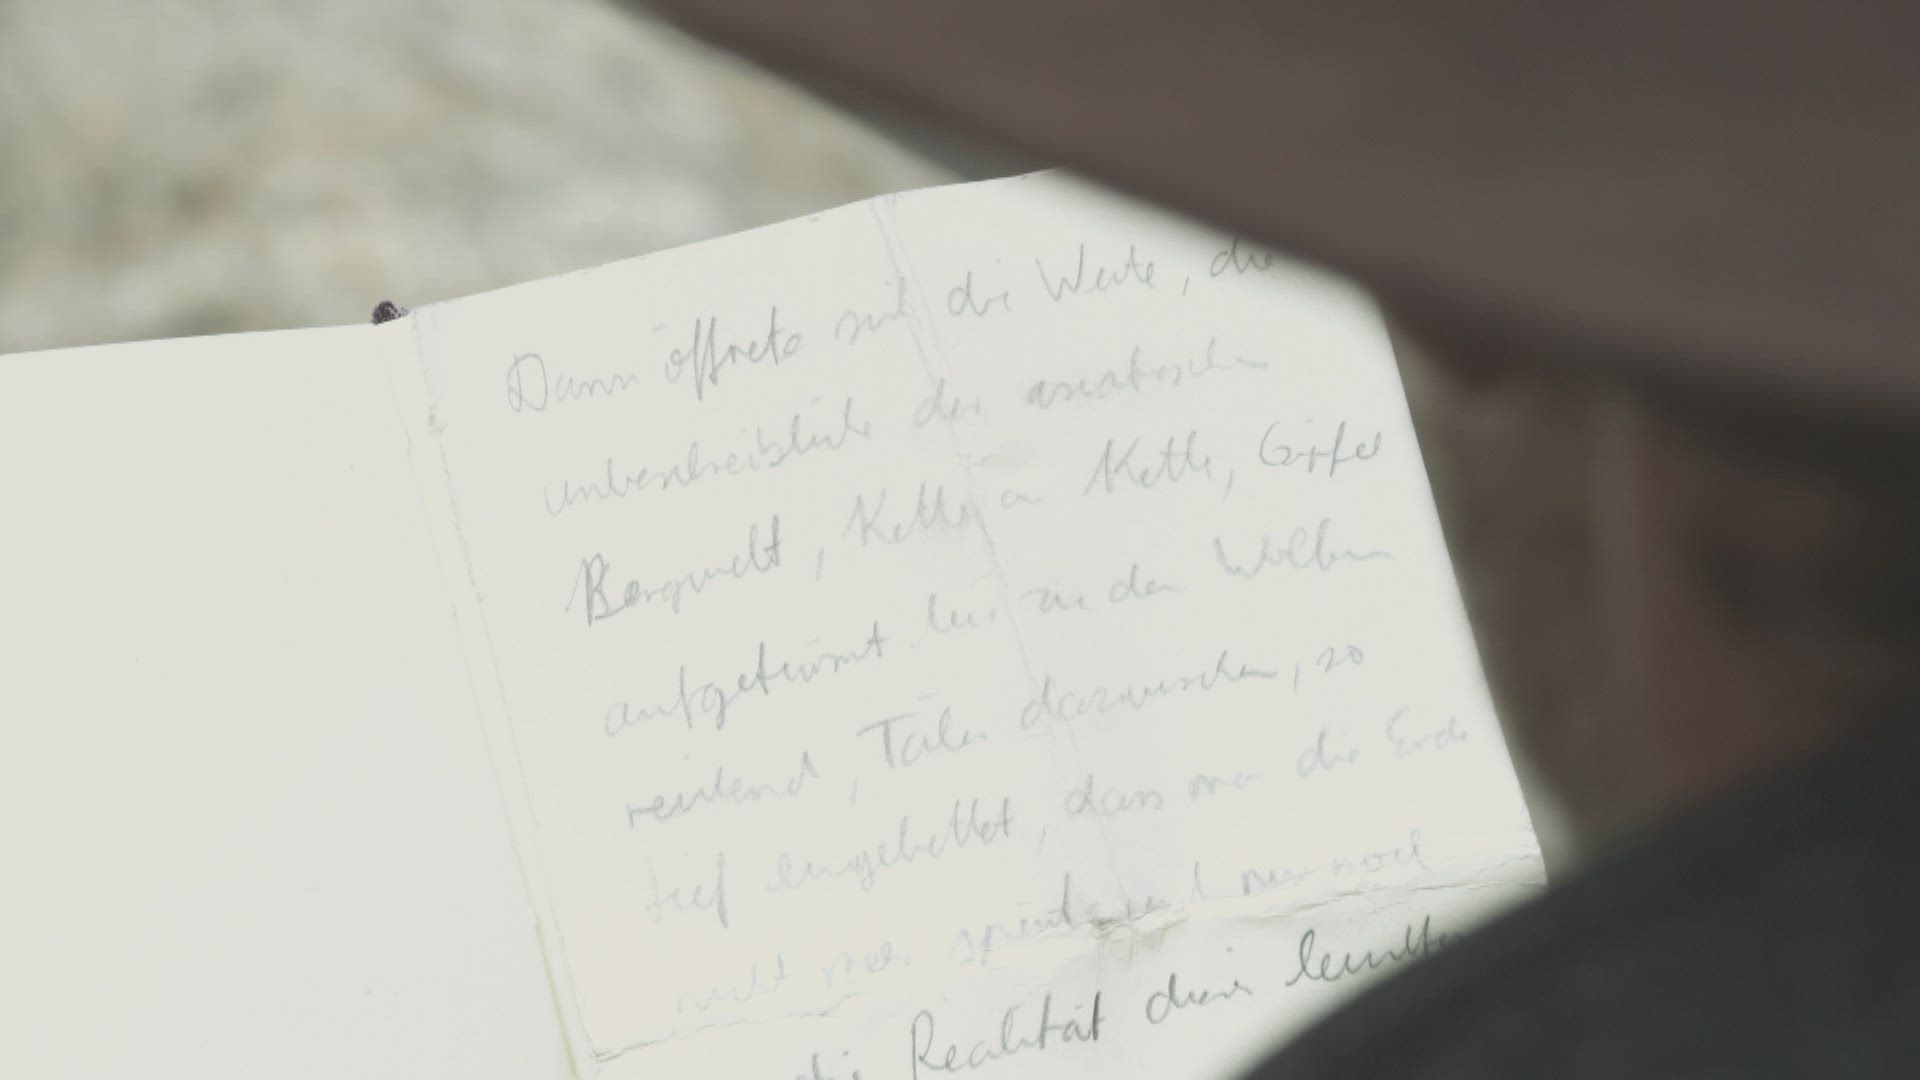 Dann öffnete sich die Weite, die
unbeschreibliche der asiatischen
Bergwelt, Kette an Kette, Gipfel
aufgetürmt bis zu den Wolken
reichend, Täler dazwischen, so
tief eingebettet, dass man die Erde
nicht mehr spürte und nur noch
die Realität dieser